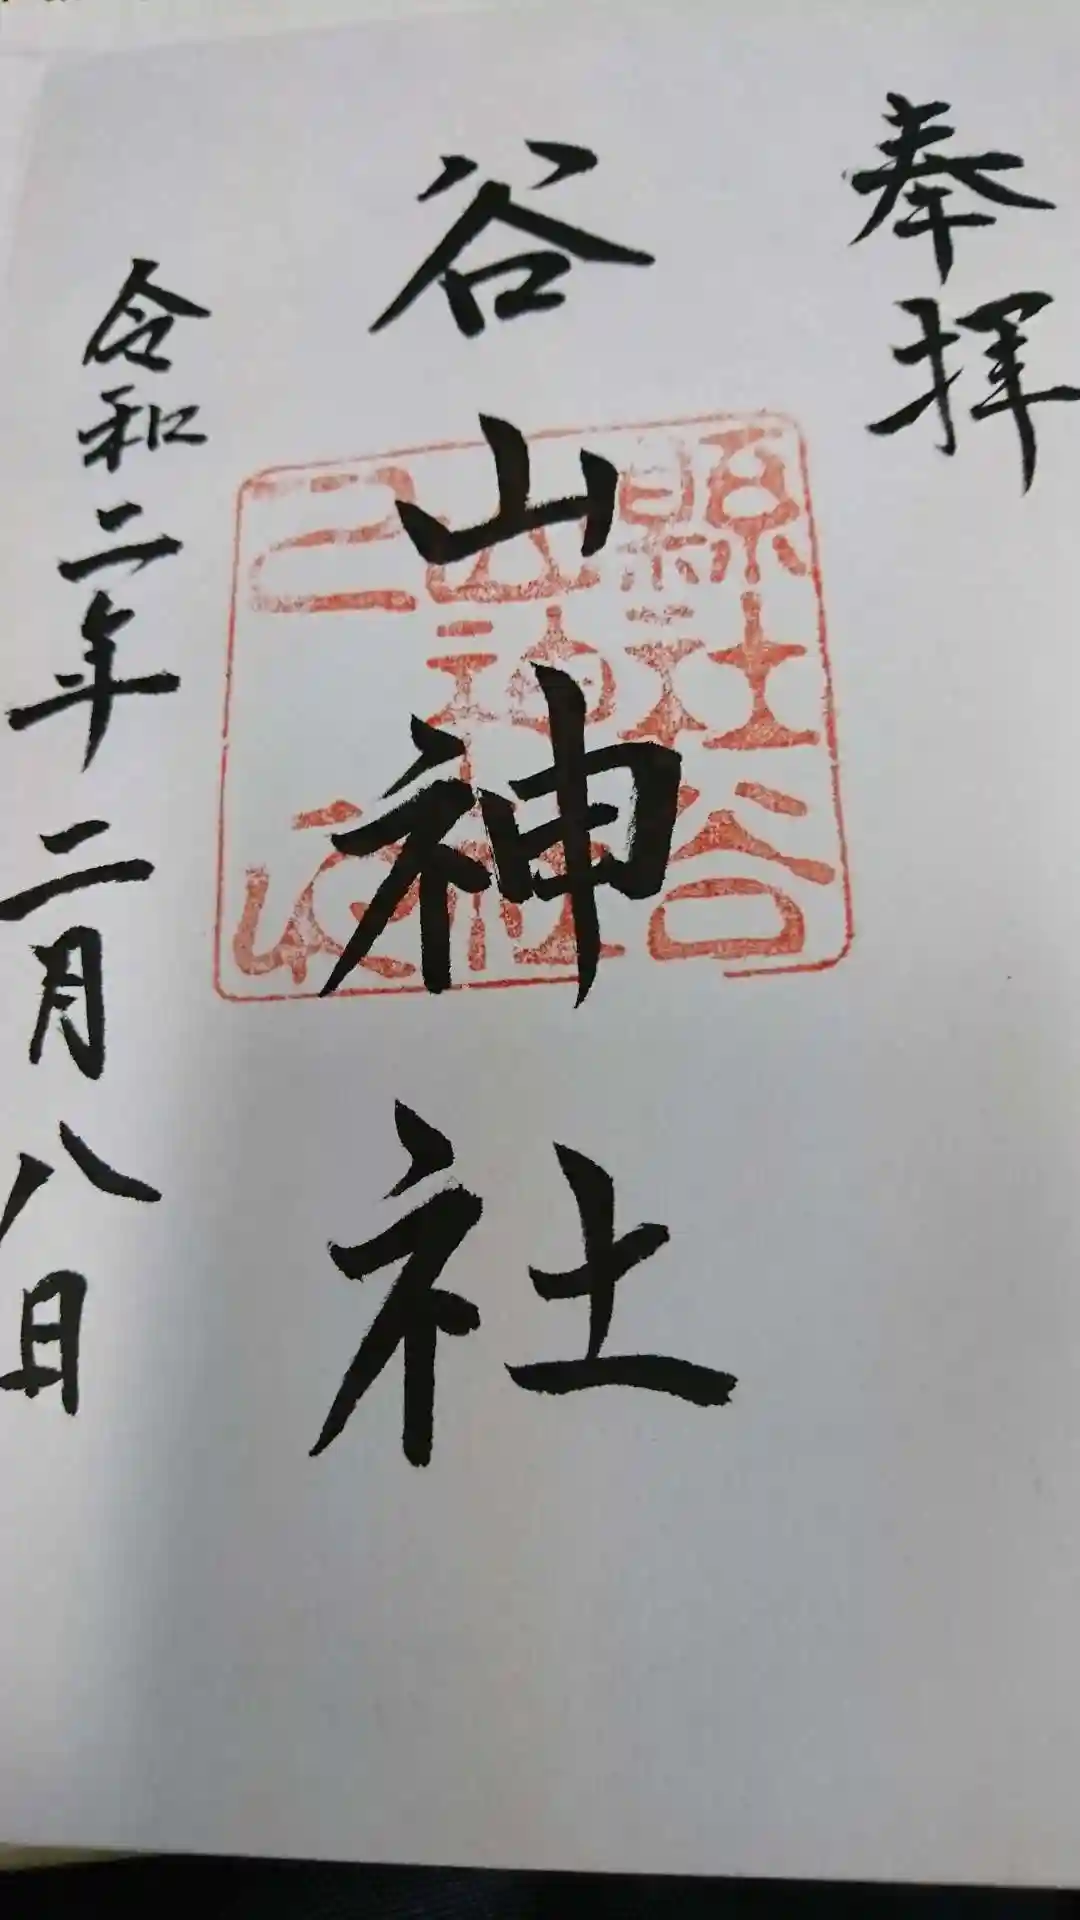 奉拝
縣社谷
谷山神社
令和二年二月八日